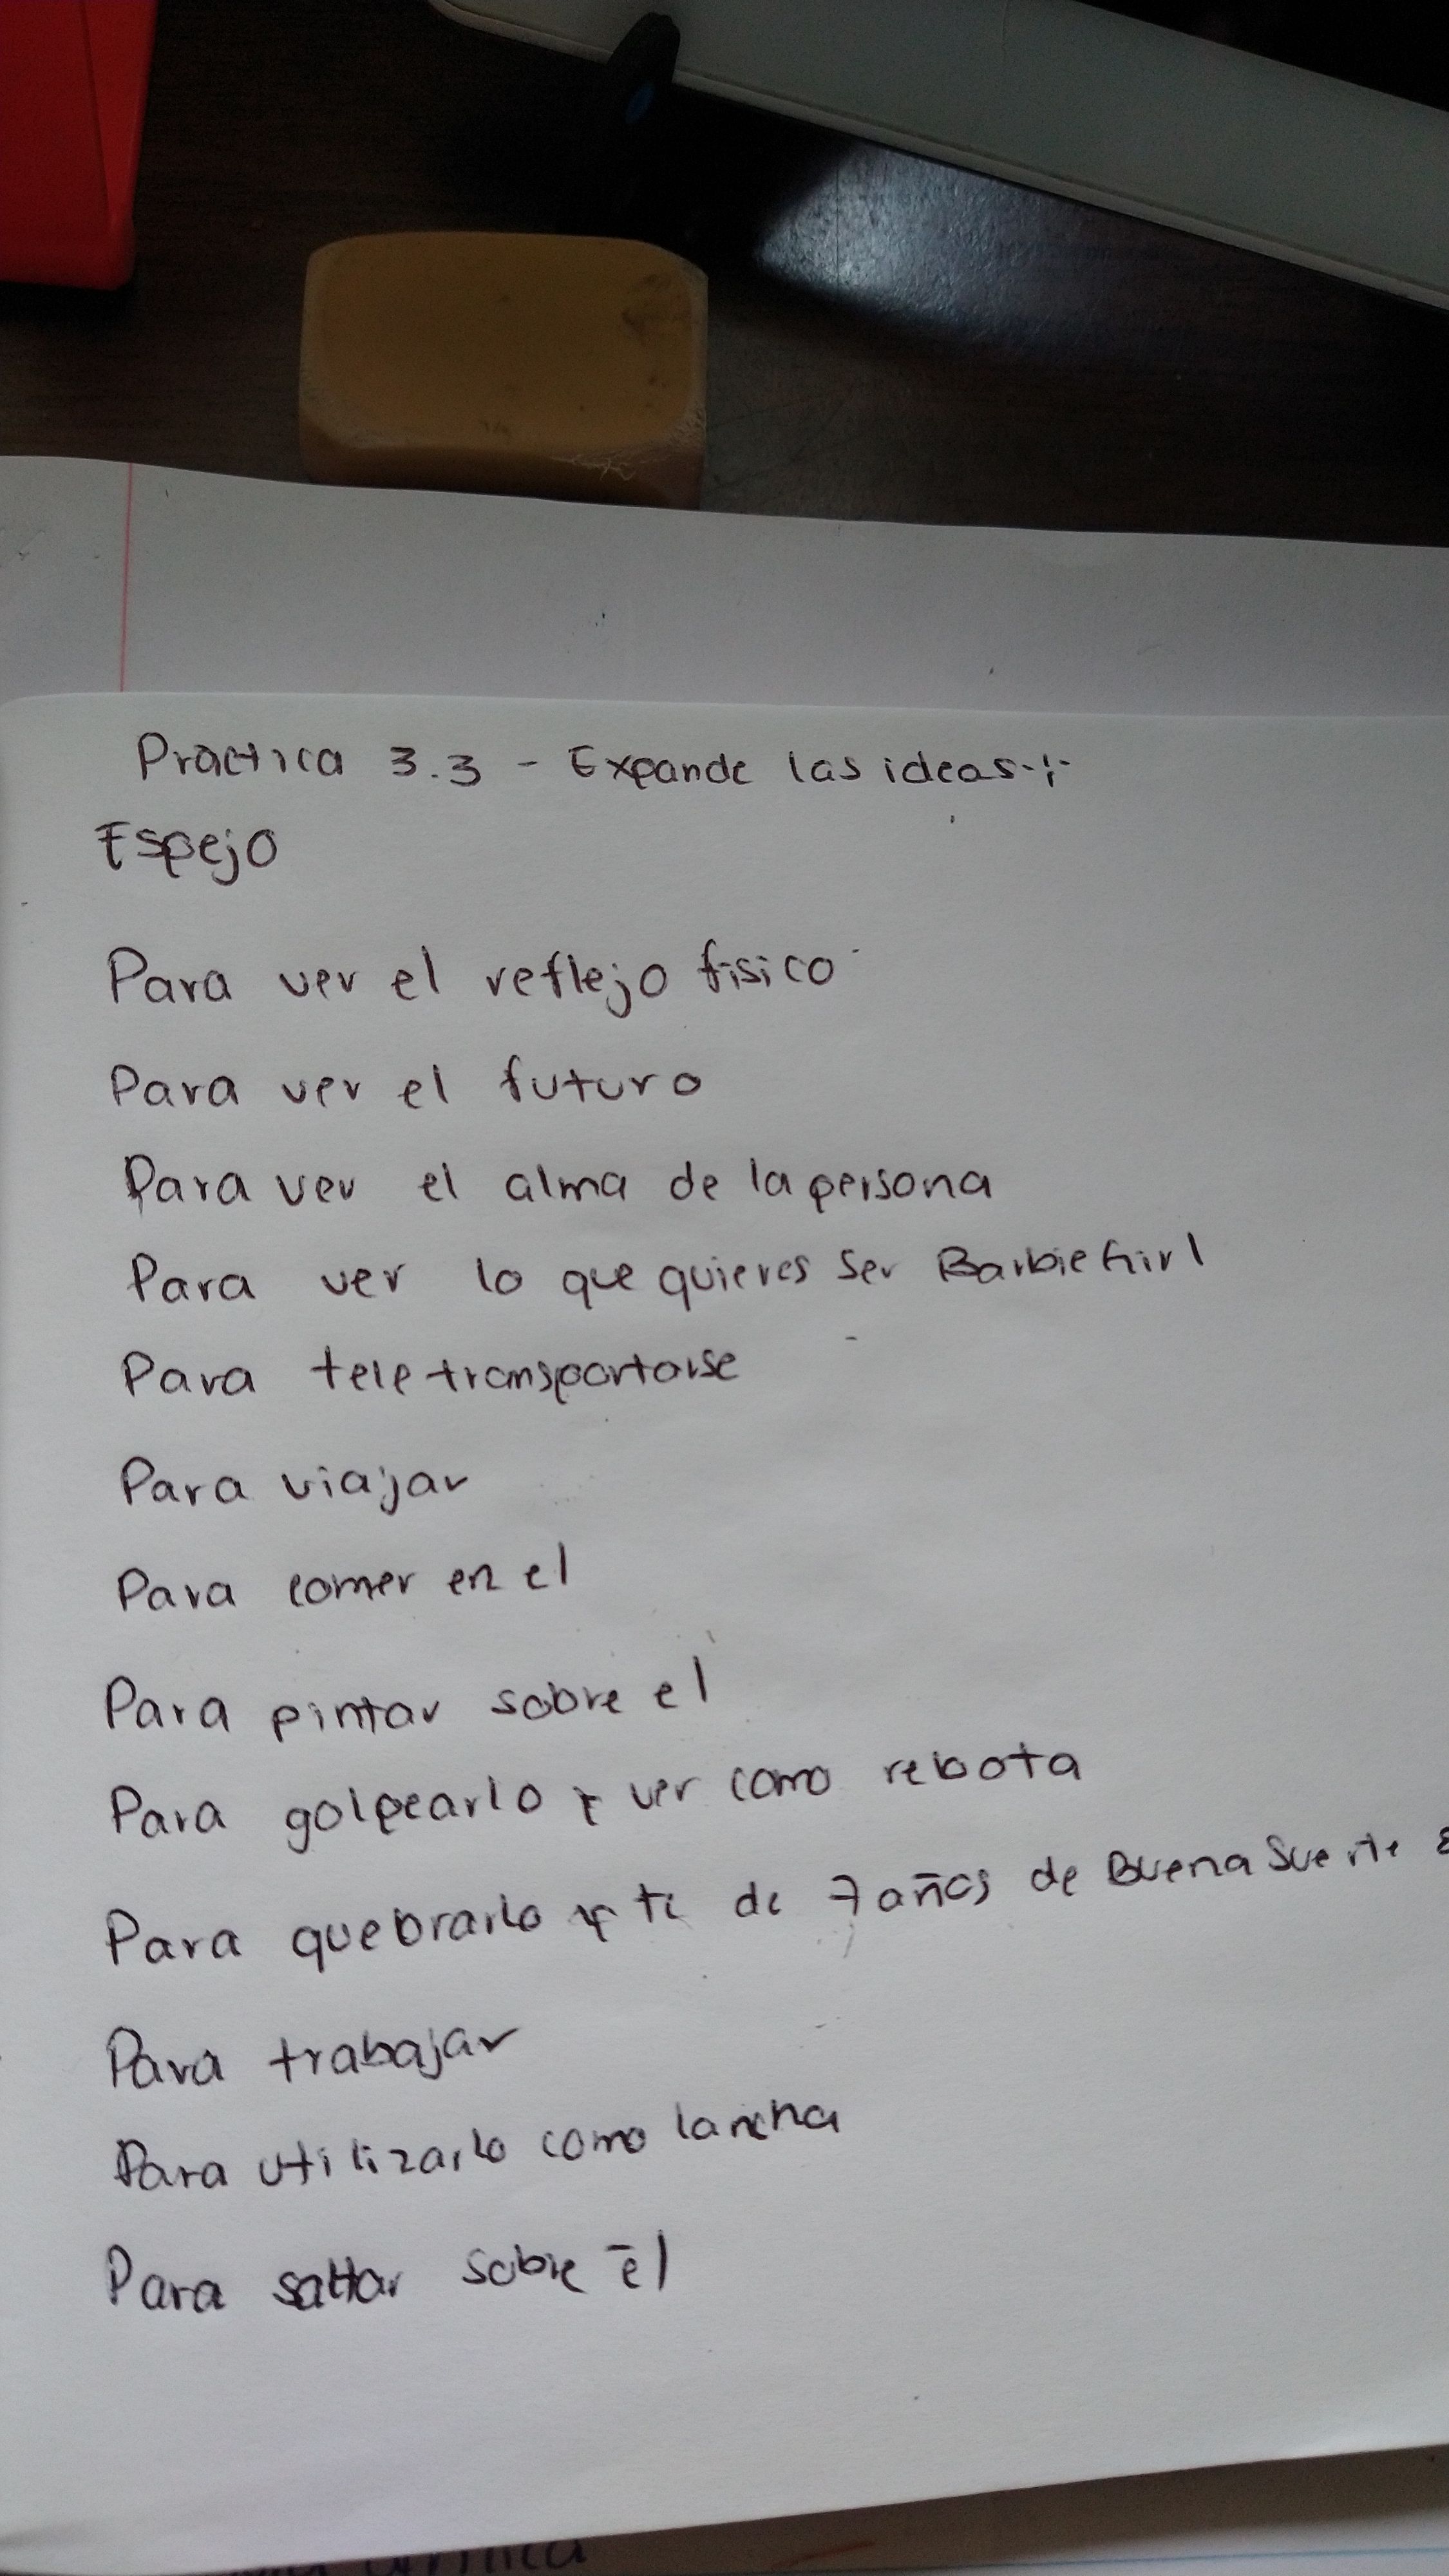 Practica 3.3 - Expande las ideas
Espejo
Para ver el reflejo fisico
Para ver el futuro
Para ver el alma de la persona
Para ver lo que quieres ser Barbie Girl
Para teletransportarse
Para viajar
Para comer en el
Para pintar sobre el
Para golpearlo y ver como rebota
Para quebrarlo y te de 7 años de Buena Suerte
Para trabajar
Para utilizarlo como lancha
Para saltar sobre él